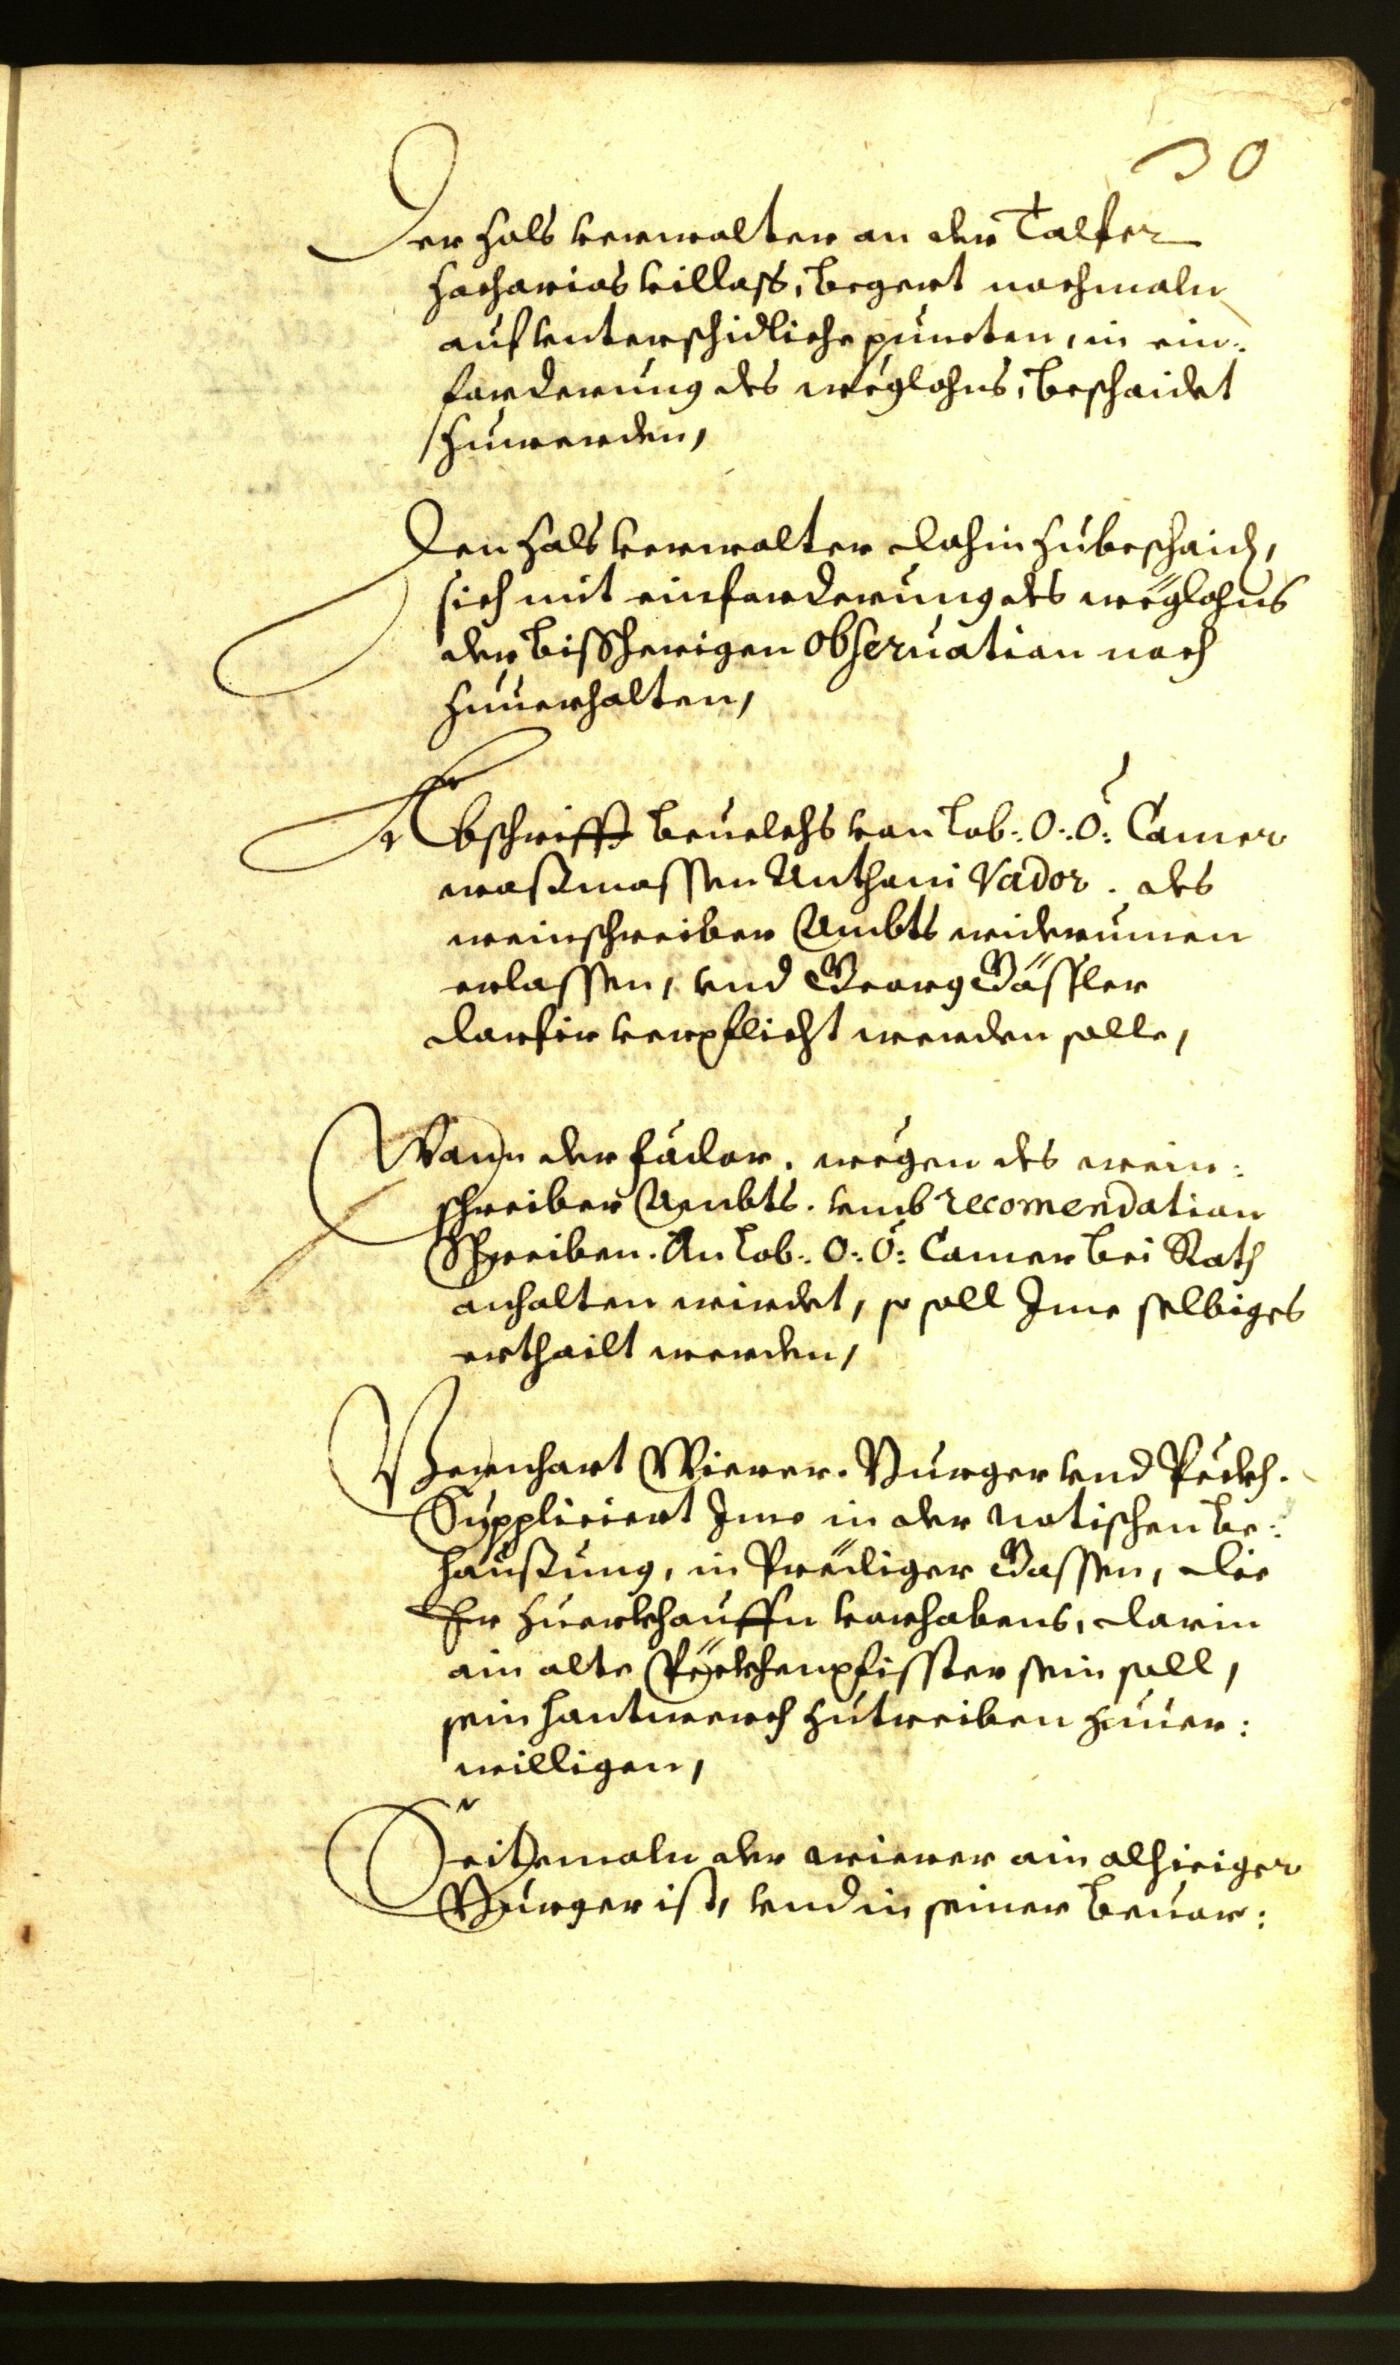 30
Der Zols verwalter an der Talfer
Zacharias villass, begert nochmaln
auf vnterschidliche puncten, in ein:
forderung des wëglohns, beschaidet
zuwerden,
Den Zols verwalter dahin zubeschaid,
sich mit einforderung des wëglohns
der bissherigen obseruation nach
zuuerhalten,
Abschrifft beuelchs von Lob: O: Ö: Camer
waßmassen Anthoni Vador. des
weinschreiber Ambts widerumen
erlassen, vnd Georg Gässler
darfir verpflicht werden solle,
Wann der Fador. wegen des wein:
schreiber Ambts. vmb recomendation
Schreiben. An Lob: O: Ö: Camer bei Rath
anhalten wirdet, so soll Ime selbiges
erthailt werden,
Bernhart Wierer. Burger vnd Peckh.
Suppliciert Ime in der Notischen be:
haußung, in Prediger Gassen, die
Er zuerkhauffn vorhabens, darin
ain alte Pëckhenpfisster sein soll,
sein hantwerch zutreiben zuuer:
willigen,
Seitemaln der wierer ain alhieiger
Burger ist, vnd in seiner beuor: